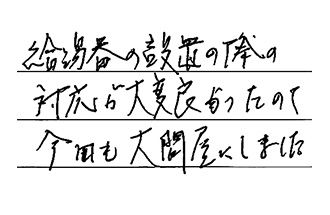 給湯器の設置の際の
対応が大変良かったので
今回も大問屋にしました